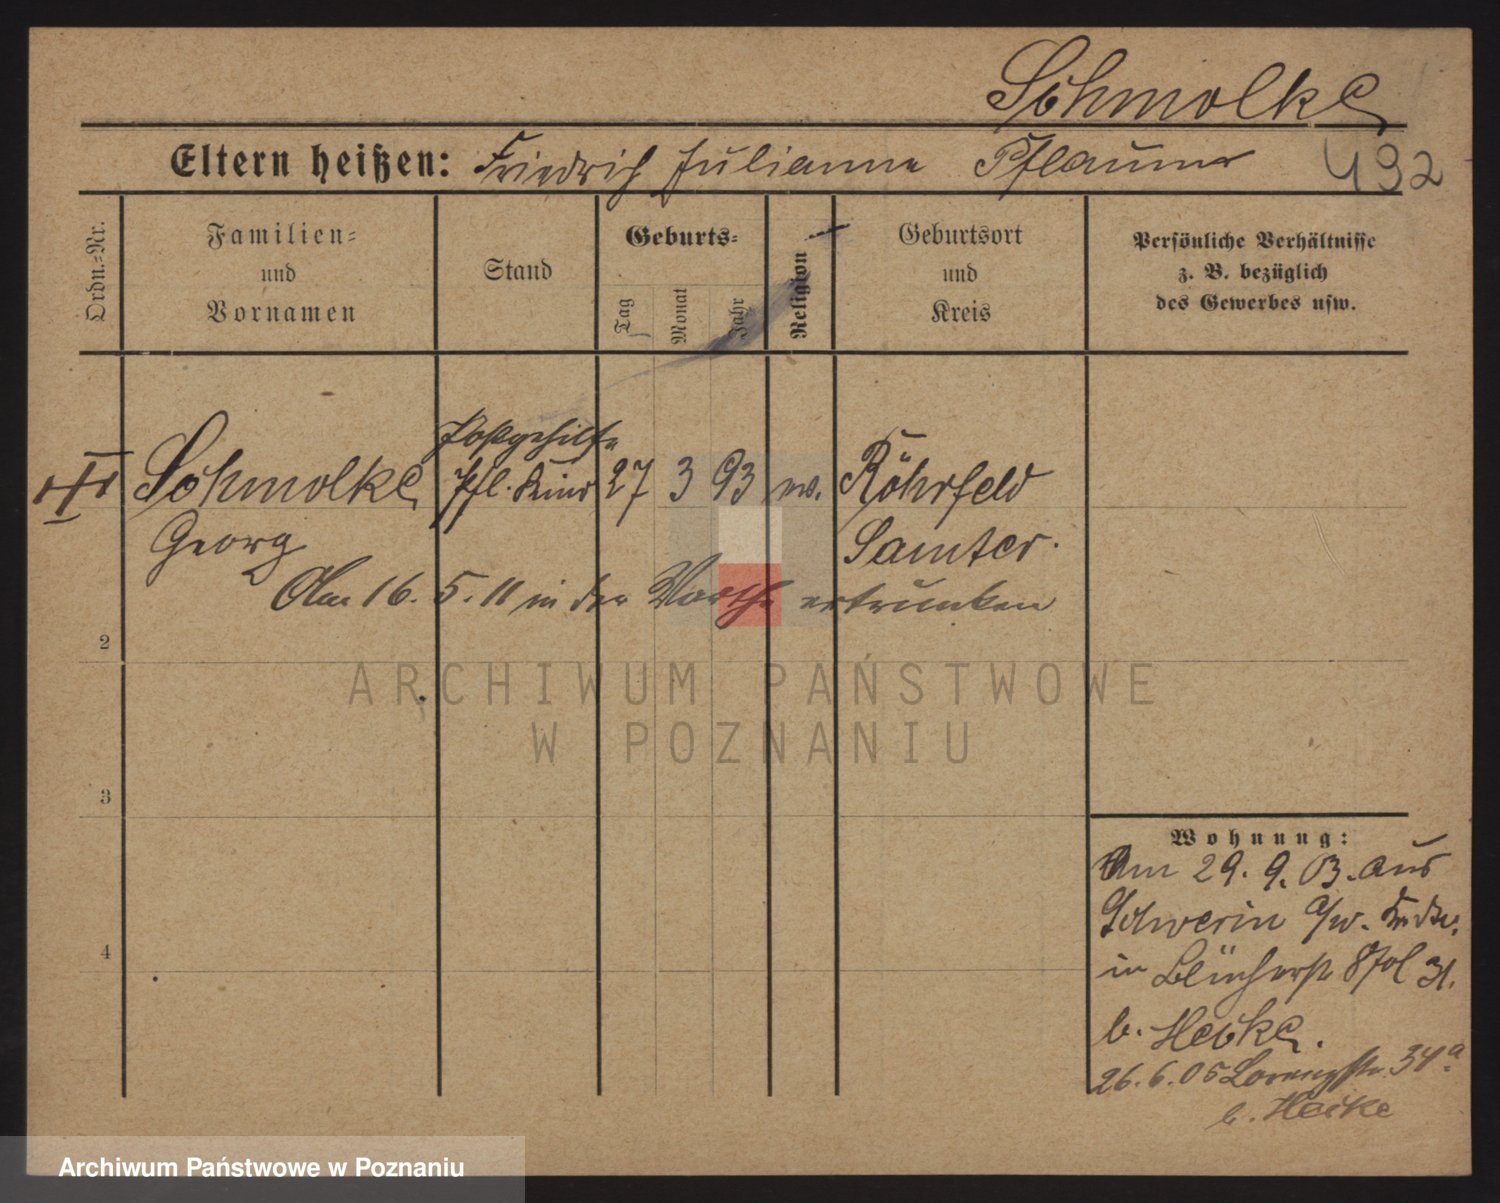 Schmolke
Eltern heißen: Friedrich Julianne Pflaume
492
Ordn.-Nr.
Familien-
und
Vornamen
Stand
Geburts-
Tag
Monat
Jahr
Religion
Geburtsort
und
Kreis
Persönliche Verhältnisse
z. B. bezüglich
des Gewerbes usw.
Postgehilfe
Schmolke Pfl. Kind 27 3 93 ev. Röhrfeld
Georg Samter.
Am 16. 5. 11 in der Warthe ertrunken
2
3
4
Wohnung:
Am 29. 9. 03. aus
Schwerin a/w.
in Blücherstr 8
b. Heike.
26. 6. 05 34a
b. Heike
ARCHIWUM PAŃSTWOWE
W POZNANIU
Archiwum Państwowe w Poznaniu